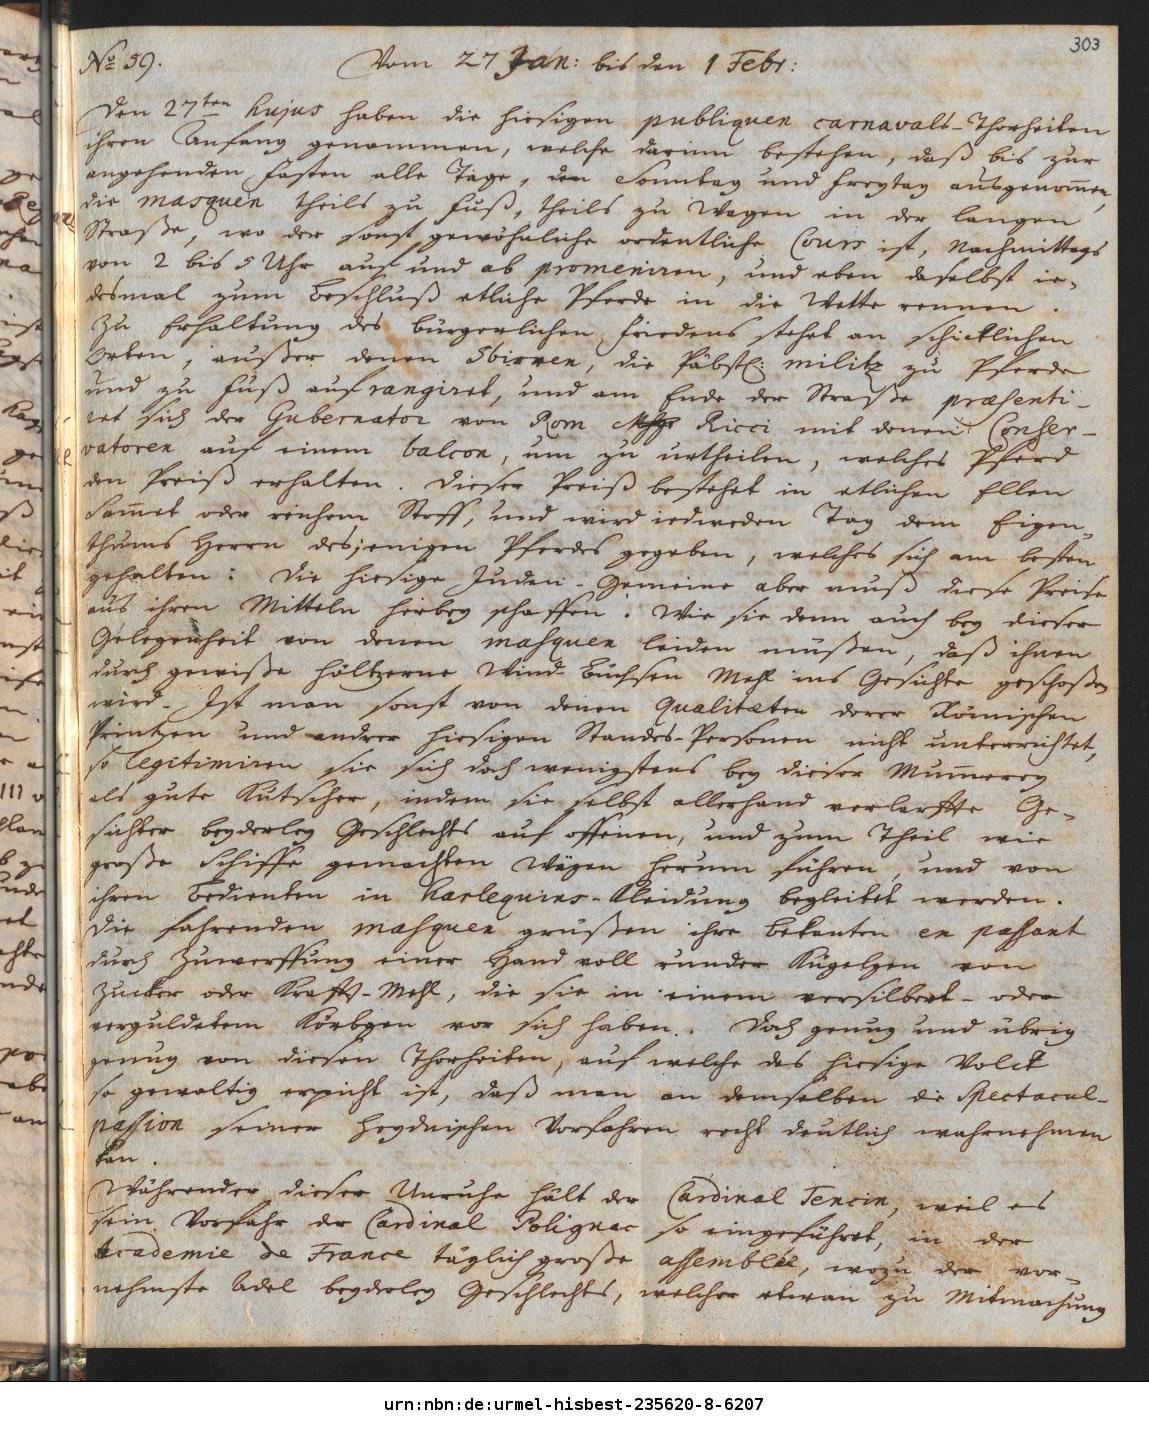 303
No 59. Vom 27 Jan: bis den 1 Febr:
Den 27ten hujus haben die hiesigen publiquen carnavals-Thorheiten
ihren Anfang genommen, welche darinn bestehen, daß bis zur
angehenden Fasten alle Tage, den Sonntag und Freytag ausgenomen,
die masquen theils zu Fuß, theils zu Wagen in der langen
Straße, wo der sonst gewöhnliche ordentliche Cours ist, Nachmittags
von 2 bis 5 Uhr auf und ab promeniren, und eben daselbst ie-
desmal zum Beschluß etliche Pferde in die Wette rennen.
Zu Erhaltung des bürgerlichen Friedens stehet an schicklichen
Orten, außer denen Sbirren, die Päbstl: militz zu Pferde
und zu Fuß auf rangiret, und am Ende der Straße præsenti-
ret sich der Gubernator von Rom Ricci mit denen Conser-
vatoren auf einem balcon, um zu urtheilen, welches Pferd
den Preiß erhalten. Dieser Preiß bestehet in etlichen Ellen
Samet oder reichem Stoff, und wird iedweden Tag dem Eigen-
thums Herrn desjenigen Pferdes gegeben, welches sich am besten
gehalten: Die hiesige Juden-Gemeine aber muß diese Preise
aus ihren Mitteln herbey schaffen: Wie sie denn auch bey dieser
Gelegenheit von denen masquen leiden müßen, daß ihnen
durch gewiße höltzerne Wind-Büchsen Mehl ins Gesichte geschoßen
wird. Ist man sonst von denen Qualitæten derer Römischen
Printzen und andrer hiesigen Standes-Personen nicht unterrichtet,
so legitimiren sie sich doch wenigstens bey dieser Mummerey
als gute Kutscher, indem sie selbst allerhand verlarffte Ge-
sichter beyderley Geschlechts auf offenen, und zum Theil wie
große Schiffe gemachten Wägen herum führen, und von
ihren Bedienten in Harlequins-Kleidung begleitet werden.
Die fahrenden masquen grüßen ihre Bekanten en passant
durch Zuwerffung einer Hand voll runder Kügelgen von
Zucker oder Krafft-Mehl, die sie in einem versilbert- oder
verguldetem Körbgen vor sich haben. Doch genung und übrig
genug von diesen Thorheiten, auf welche das hiesige Volck
so gewaltig erpicht ist, daß man an demselben die Spectacul-
passion seiner Heydnischen Vorfahren recht deutlich wahrnehmen
kan.
Währender dieser Unruhe hält der Cardinal Tencin, weil es
sein Vorfahr der Cardinal Polignac so eingeführet, in der
Academie de France täglich große assemblée, wozu der vor-
nehmste Adel beyderley Geschlechts, welcher etwan zu Mitmachung
urn:nbn:de:urmel-hisbest-235620-8-6207